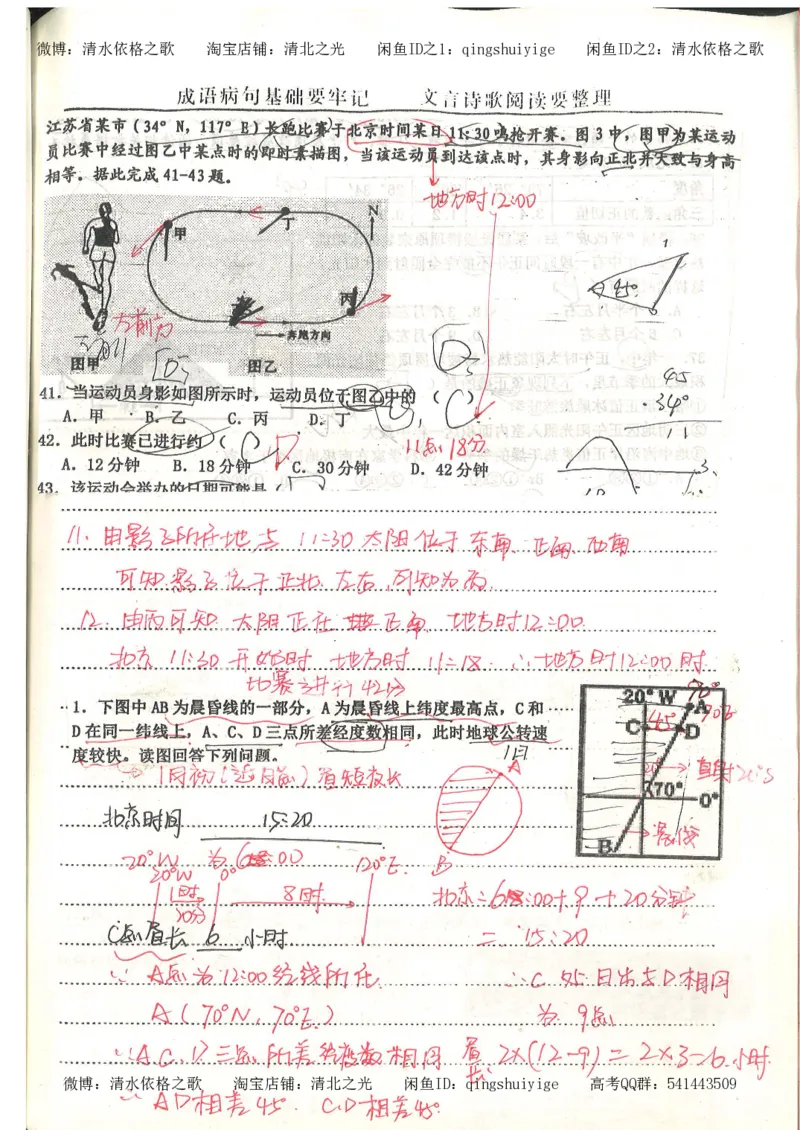 微博：清水依格之歌 淘宝店铺：清北之光 闲鱼ID之1：qingshuiyige 闲鱼ID之2：清水依格之歌
成语病句基础要牢记 文言诗歌阅读要整理
江苏省某市（34° N，117° E）长跑比赛于北京时间某日11：30鸣枪开赛。图3中，图甲为某运动
员比赛中经过图乙中某点时的即时素描图，当该运动员到达该点时，其身影向正北并大致与身高
相等。据此完成41-43题。
地方时12:00
甲
丁
N
丙
奔跑方向
图甲 图乙
45°
41．当运动员身影如图所示时，运动员位于图乙中的（ ）
A．甲 B．乙 C．丙 D．丁
42．此时比赛已进行约（ ） D 11点18分
A．12分钟 B．18分钟 C．30分钟 D．42分钟
43．该运动会举办的日期可能是（
11. 由影子所在地点 11:30 太阳位于东南 正南 西南
可知影子位于正北 左右 可知为丙
12. 由丙可知 太阳正在 正南 地方时12:00
北京 11:30 开始时 地方时 11:18 ∴地方时12:00时
比赛进行42分
1．下图中AB为晨昏线的一部分，A为晨昏线上纬度最高点，C和
D在同一纬线上，A、C、D三点所差经度数相同，此时地球公转速
度较快。读图回答下列问题。 1月
20° W 70° A
C 45° D
20° 直射20°S
70° 0°
B 晨线
1月初（近日点）昼短夜长
A
B
北京时间 15:20
20°W 为 6:00
20°W 0° 120°E
1时 8时
20分
北京=6:00+9+20分钟
= 15:20
C点昼长 6 小时
∵ A点为12:00经线所在
A（70°N，70°E）
∴C处日出与D相同
为 9点
∵A C D三点所差经度数相同 昼长 2×(12-9)=2×3=6小时
微博：清水依格之歌 淘宝店铺：清北之光 闲鱼ID：qingshuiyige 高考QQ群：541443509
∵ AD相差45° C.D相差45°